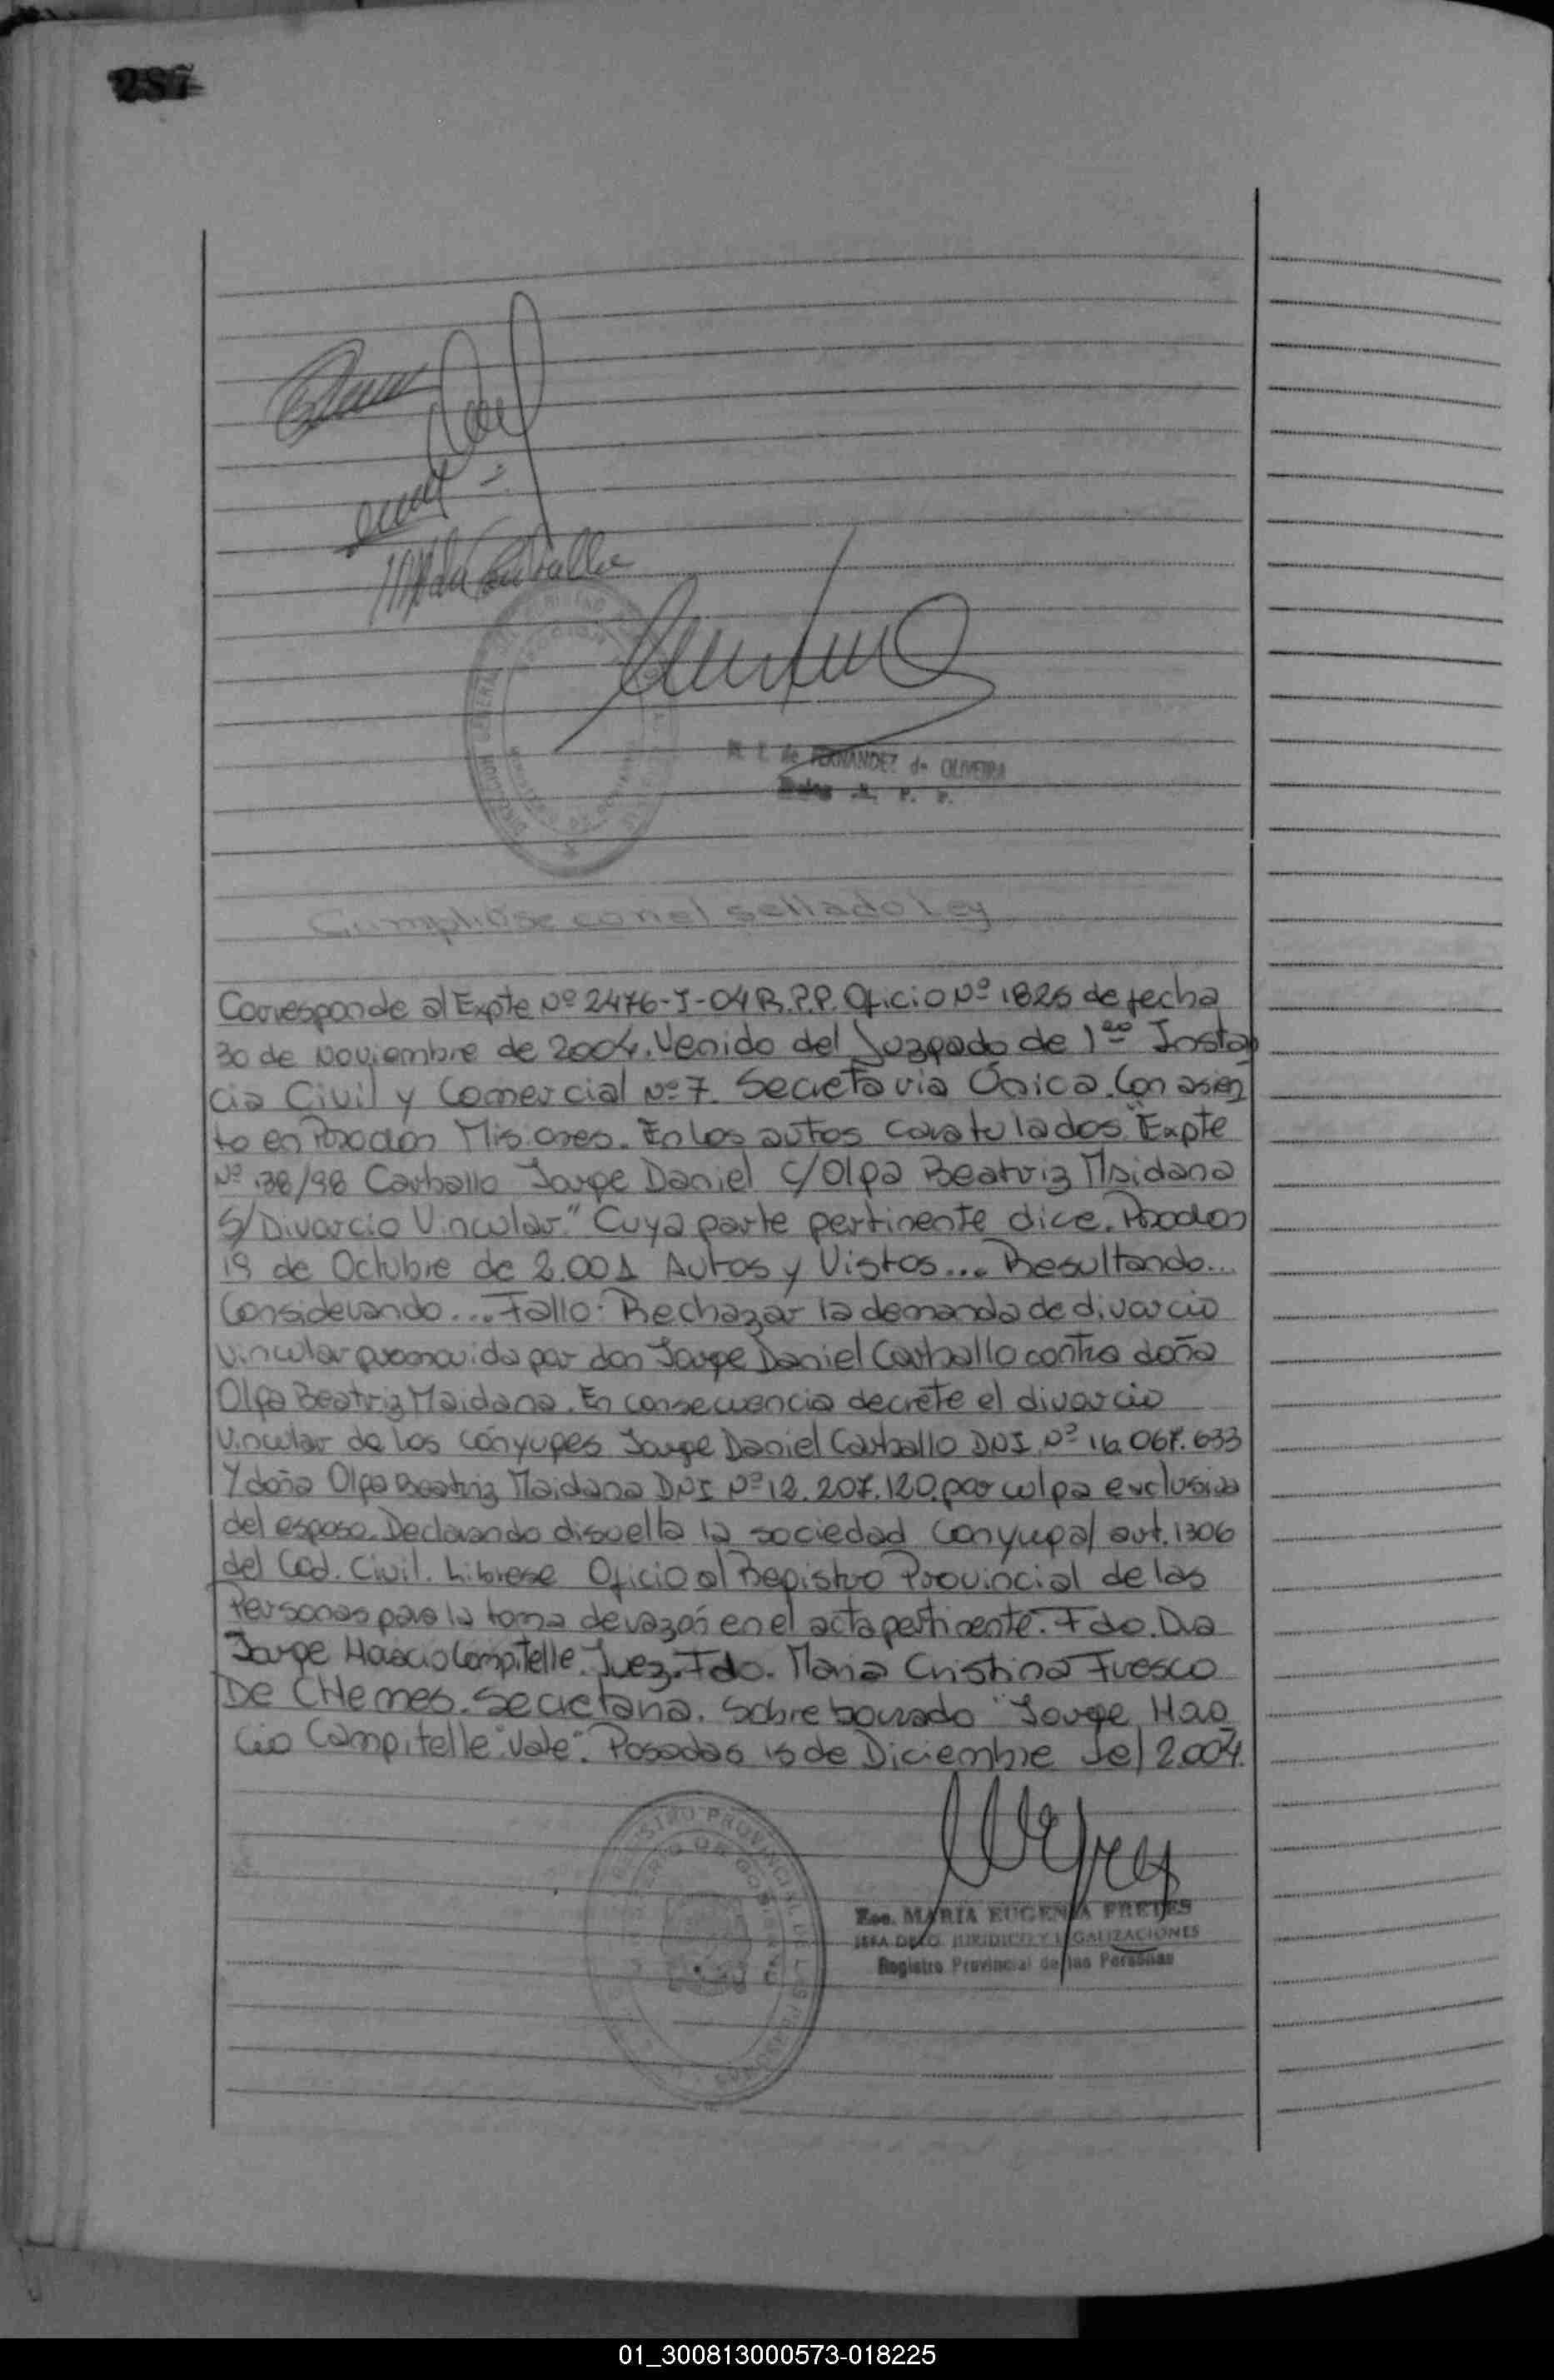 287
M. E. de FERNANDEZ de OLIVEIRA
R. P. P.
Cumplióse con el sellado Ley
Corresponde al Expte Nº 2476-J-04 R.P.P. Oficio Nº 1826 de fecha
30 de Noviembre de 2004. Venido del Juzgado de 1ra Instan
cia Civil y Comercial Nº 7. Secretaria Única. Con asien
to en Posadas Misiones. En los autos caratulados "Expte
Nº 138/98 Carballo Jorge Daniel c/ Olga Beatriz Maidana
S/ Divorcio Vincular." Cuya parte pertinente dice. Posadas
19 de Octubre de 2.001 Autos y Vistos... Resultando...
Considerando... Fallo: Rechazar la demanda de divorcio
vincular promovida por don Jorge Daniel Carballo contra doña
Olga Beatriz Maidana. En consecuencia decrete el divorcio
vincular de los cónyuges Jorge Daniel Carballo DNI Nº 16.067.633
Y doña Olga Beatriz Maidana DNI Nº 12.207.120. por culpa exclusiva
del esposo. Declarando disuelta la sociedad Conyugal art. 1306
del Cod. Civil. Librese Oficio al Registro Provincial de las
Personas para la toma de razón en el acta pertinente. Fdo. Dra
Jorge Horacio Campitelle. Juez. Fdo. Maria Cristina Fuesco
De CHemes. Secretaria. Sobre borrado "Jorge Hora
cio Campitelle" Vale". Posadas 15 de Diciembre del 2.004.
REGISTRO PROVINCIAL DE LAS PERSONAS
Esc. MARIA EUGENIA PRETES
JEFA DPTO. JURIDICO Y LEGALIZACIONES
Registro Provincial de las Personas
01_300813000573-018225